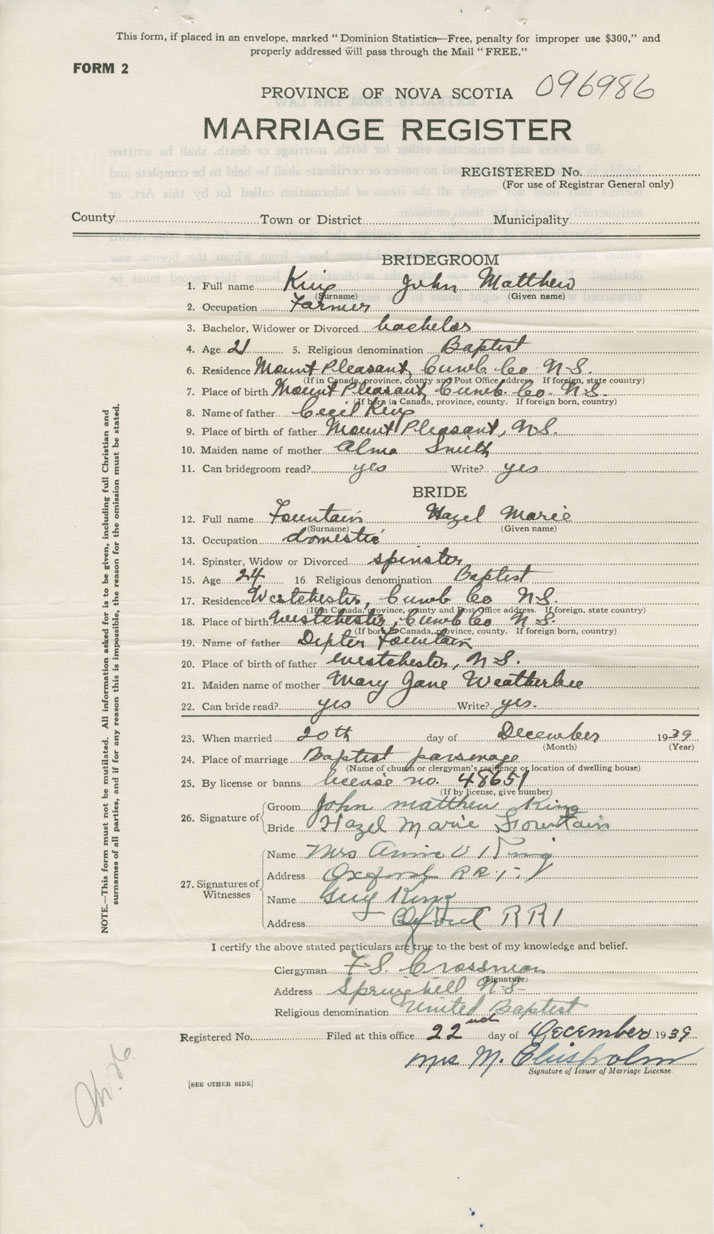 This form, if placed in an envelope, marked "Dominion Statistics—Free, penalty for improper use $300," and
properly addressed will pass through the Mail "FREE."
FORM 2
PROVINCE OF NOVA SCOTIA 096986
MARRIAGE REGISTER
REGISTERED No.
(For use of Registrar General only)
County Town or District Municipality
BRIDEGROOM
1. Full name King John Matthew
(Surname) (Given name)
2. Occupation Farmer
3. Bachelor, Widower or Divorced bachelor
4. Age 21 5. Religious denomination Baptist
6. Residence Mount Pleasant, Cumb. Co. N.S.
(If in Canada, province, county and Post Office address If foreign, state country)
7. Place of birth Mount Pleasant, Cumb. Co. N.S.
(If born in Canada, province, county. If foreign born, country)
8. Name of father Cecil King
9. Place of birth of father Mount Pleasant, N.S.
10. Maiden name of mother Alma Smith
11. Can bridegroom read? yes Write? yes
BRIDE
12. Full name Fountain Hazel Marie
(Surname) (Given name)
13. Occupation domestic
14. Spinster, Widow or Divorced spinster
15. Age 24 16 Religious denomination Baptist
17. Residence Westchester, Cumb Co N.S.
(If in Canada, province, county and Post Office address. If foreign, state country)
18. Place of birth Westchester, Cumb Co N.S.
(If born in Canada, province, county. If foreign born, country)
19. Name of father Fountain
20. Place of birth of father Westchester, N.S.
21. Maiden name of mother Mary Jane Weatherbee
22. Can bride read? yes Write? yes.
23. When married 20th day of December 1939
(Month) (Year)
24. Place of marriage Baptist parsonage
(Name of church or clergyman's residence or location of dwelling house)
25. By license or banns license no. 48651
(If by license, give number)
26. Signature of
Groom John matthew King
Bride Hazel Marie Fountain
27. Signatures of Witnesses
Name Mrs Annie U King
Address Oxford RR1
Name Guy King
Address Oxford RR1
I certify the above stated particulars are true to the best of my knowledge and belief.
Clergyman F.S. Crossman
(Signature)
Address Springhill N.S.
Religious denomination United Baptist
Registered No. Filed at this office 22nd day of December 1939
Mrs M. Chisholm
Signature of Issuer of Marriage License.
[SEE OTHER SIDE]
NOTE.—This form must not be mutilated. All information asked for is to be given, including full Christian and
surnames of all parties, and if for any reason this is impossible, the reason for the omission must be stated.